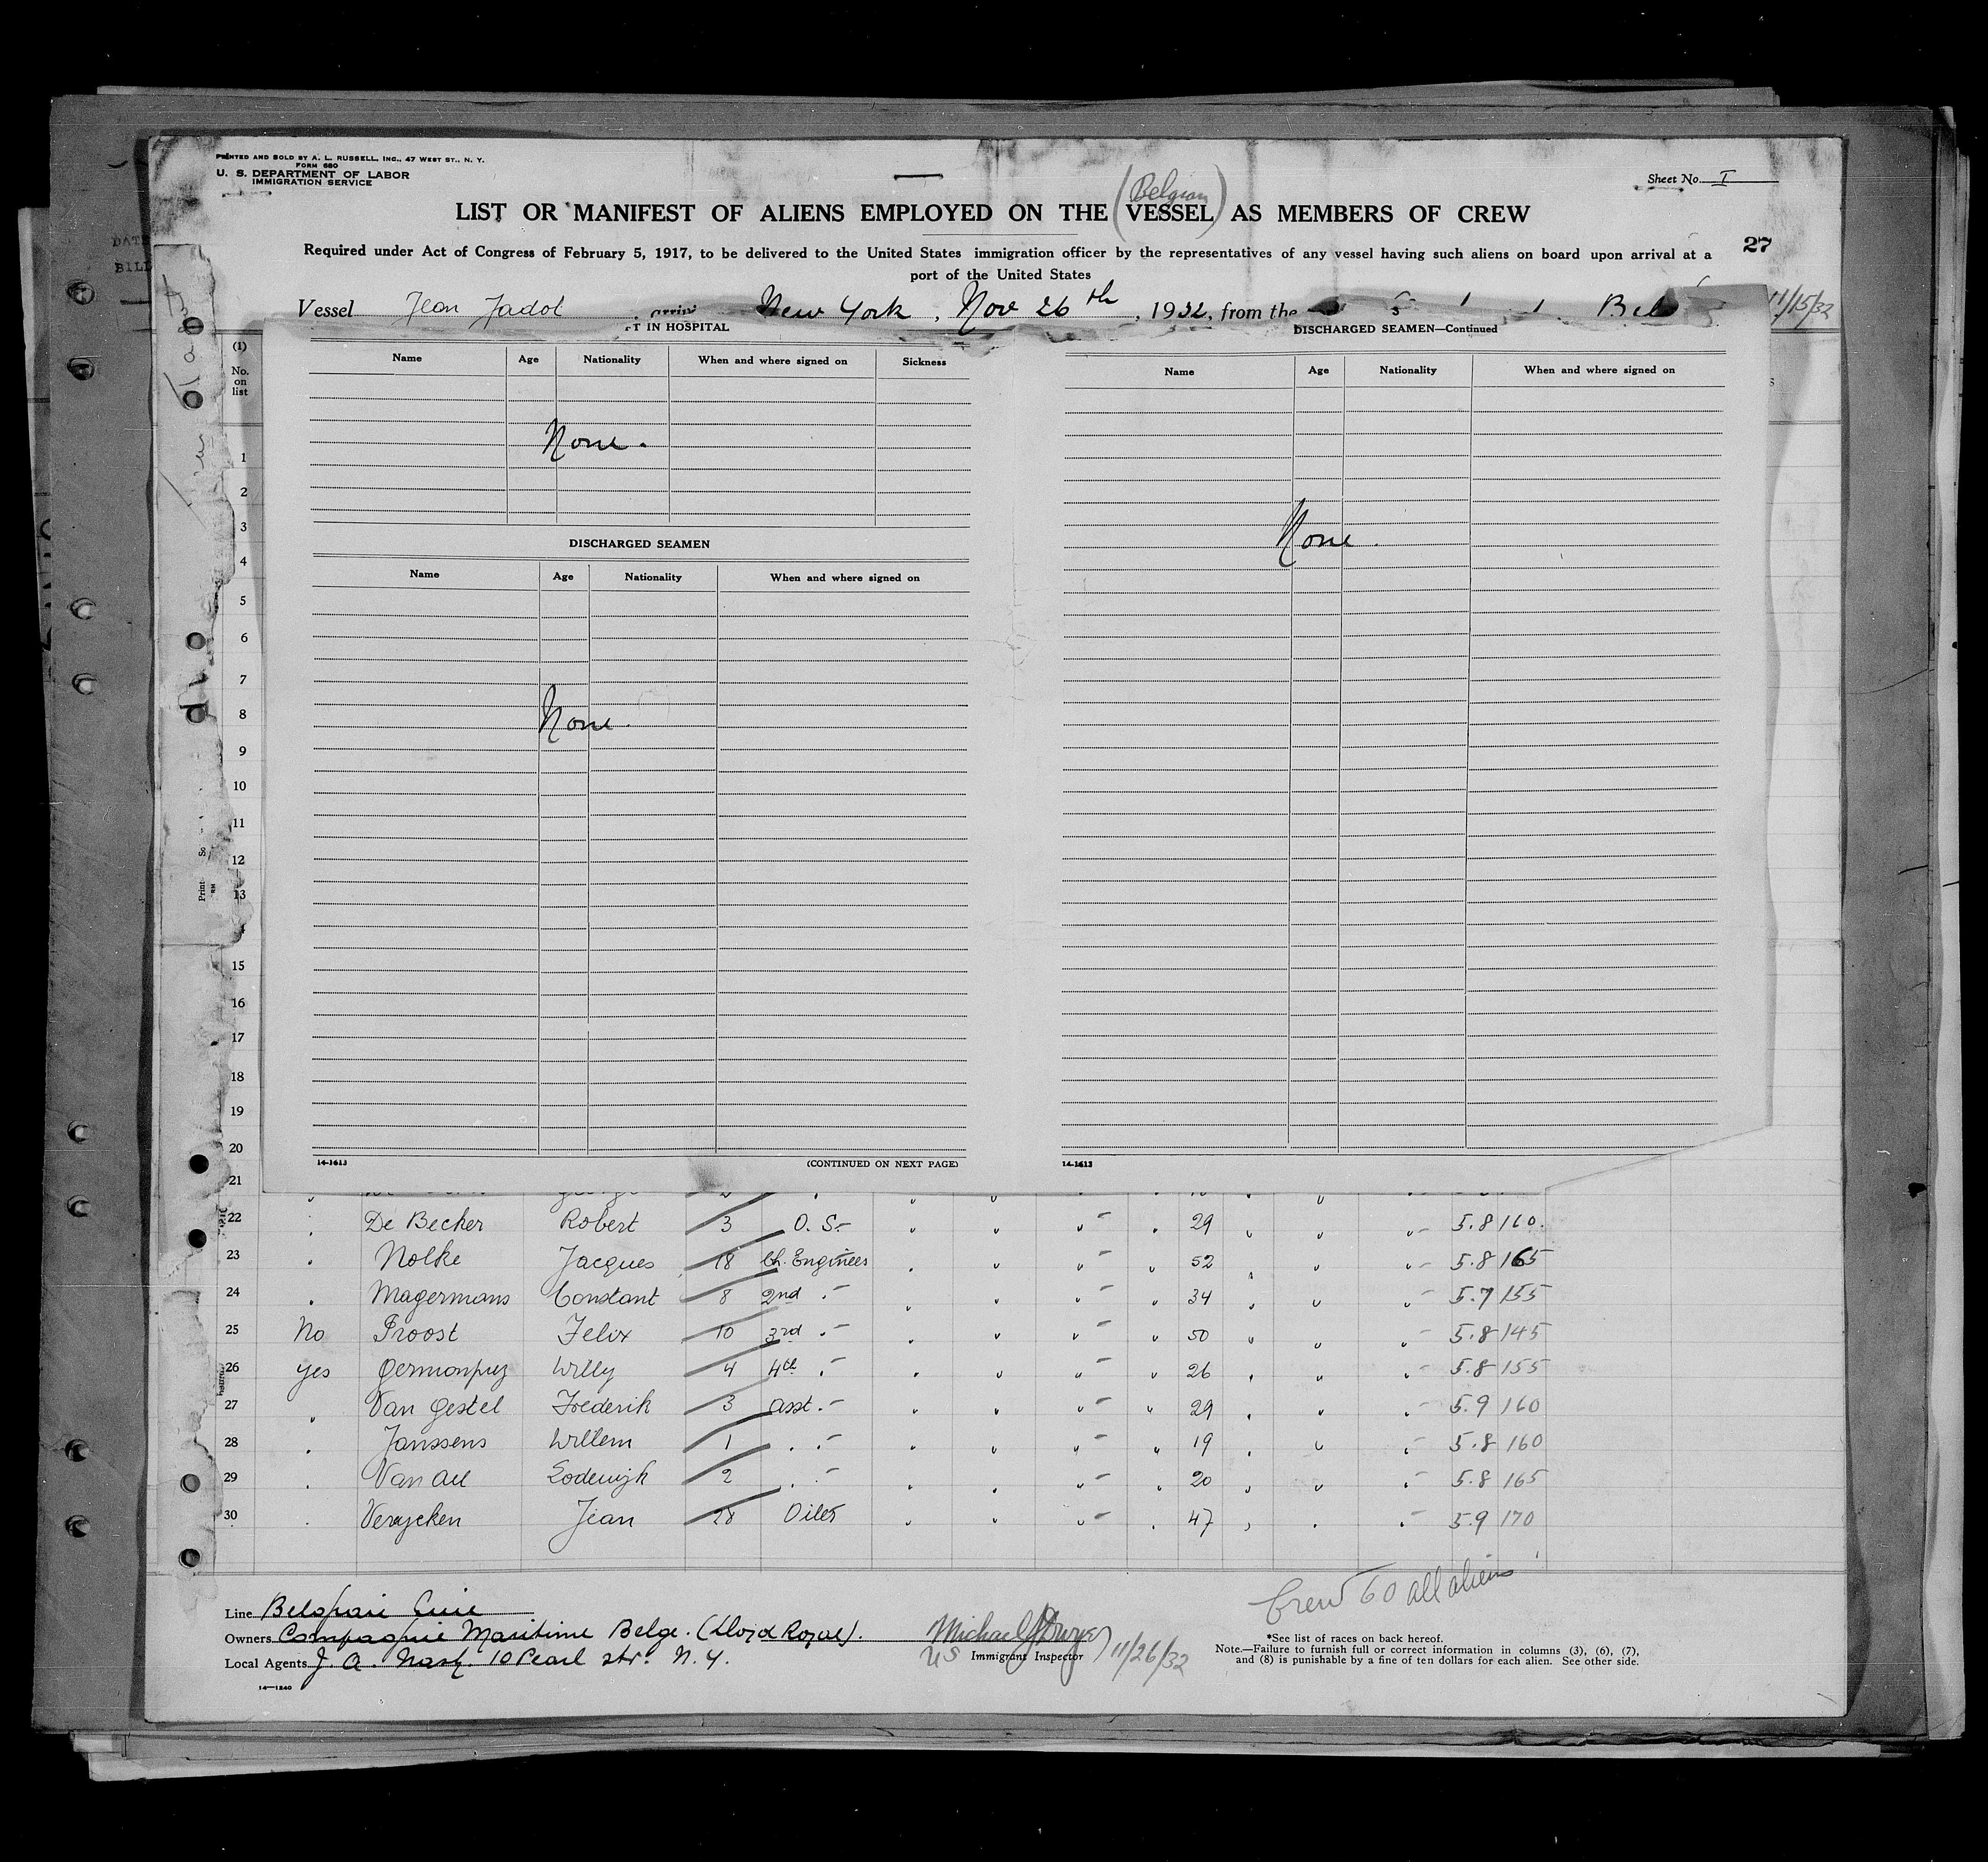 PRINTED AND SOLD BY A. L. RUSSELL, INC., 47 WEST ST., N. Y.
FORM 680
U. S. DEPARTMENT OF LABOR
IMMIGRATION SERVICE
Sheet No. I
(Belgian)
LIST OR MANIFEST OF ALIENS EMPLOYED ON THE VESSEL AS MEMBERS OF CREW
Required under Act of Congress of February 5, 1917, to be delivered to the United States immigration officer by the representatives of any vessel having such aliens on board upon arrival at a
port of the United States
27
Vessel Jean Jadot, New York, Nov 26th, 1932, from the
11/15/32
T IN HOSPITAL
Name Age Nationality When and where signed on Sickness
None.
DISCHARGED SEAMEN
Name Age Nationality When and where signed on
None.
14-1613 (CONTINUED ON NEXT PAGE)
DISCHARGED SEAMEN—Continued
Name Age Nationality When and where signed on
None.
14-1613
(1)
No.
on
list
1
2
3
4
5
6
7
8
9
10
11
12
13
15
16
17
18
19
20
21
22 " De Becker Robert 3 O. S. " " " " 29 " " " 5.8 160.
23 " Nolke Jacques 18 Ch. Engineer " " " " 52 " " " 5.8 165
24 " Magermans Constant 8 2nd " " " " " 34 " " " 5.7 155
25 No Proost Felix 10 3rd " " " " " 50 " " " 5.8 145
26 yes Willy 4 4th " " " " " 26 " " " 5.8 155
27 " Van Gestel Frederik 3 asst. " " " " 29 " " " 5.9 160
28 " Janssens Willem 1 " " " " " " 19 " " " 5.8 160
29 " Lodewijk 2 " " " " " 20 " " " 5.8 165
30 " Verycken Jean 28 Oiler " " " " 47 " " " 5.9 170
Crew 60 all aliens
Line
Owners Compagnie Maritime Belge. (Lloyd Royal).
Local Agents J. A. Nash 10 Pearl str. N. Y.
14—1240
Michael J Dwyer
US Immigrant Inspector 11/26/32
*See list of races on back hereof.
Note.—Failure to furnish full or correct information in columns (3), (6), (7),
and (8) is punishable by a fine of ten dollars for each alien. See other side.